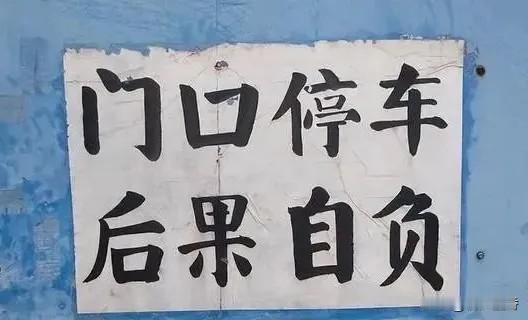 门口停车
后果自负